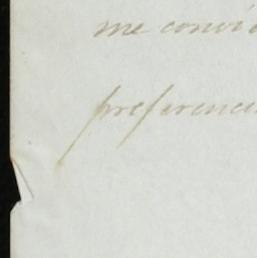 me convi
preference